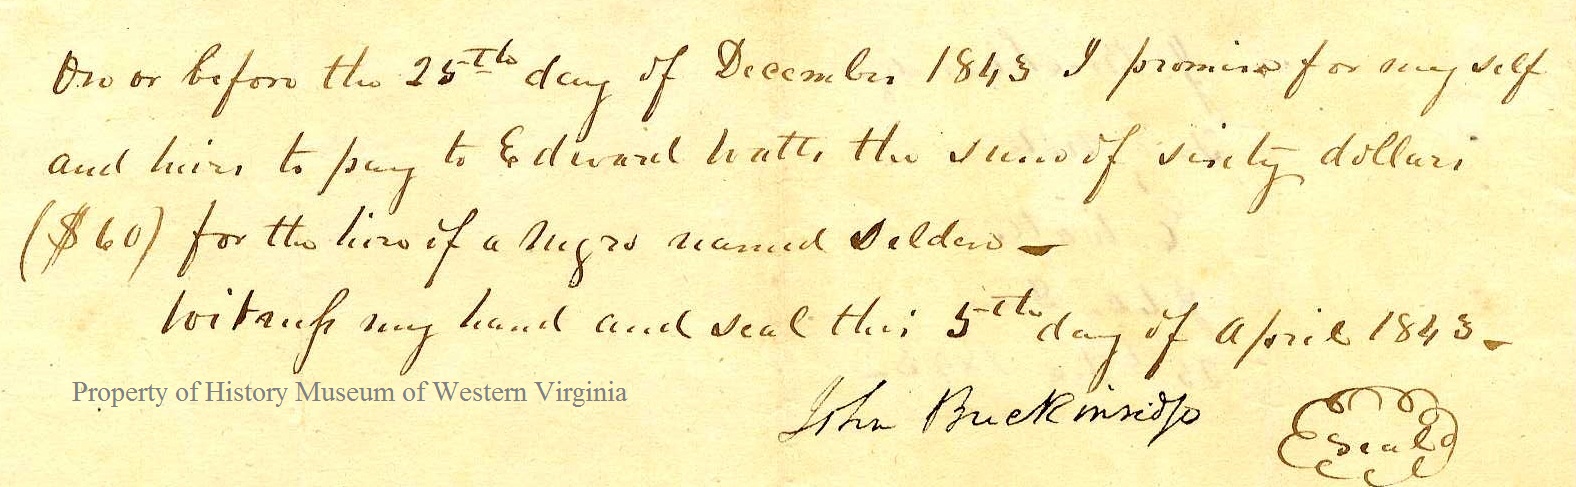 On or before the 25th day of December 1843 I promise for my self
and heirs to pay to Edward Watts the sum of sixty dollars
($60) for the hire of a negro named Selden —
Witness my hand and seal this 5th day of April 1843 —
Property of History Museum of Western Virginia
John Buckinridge
Seal